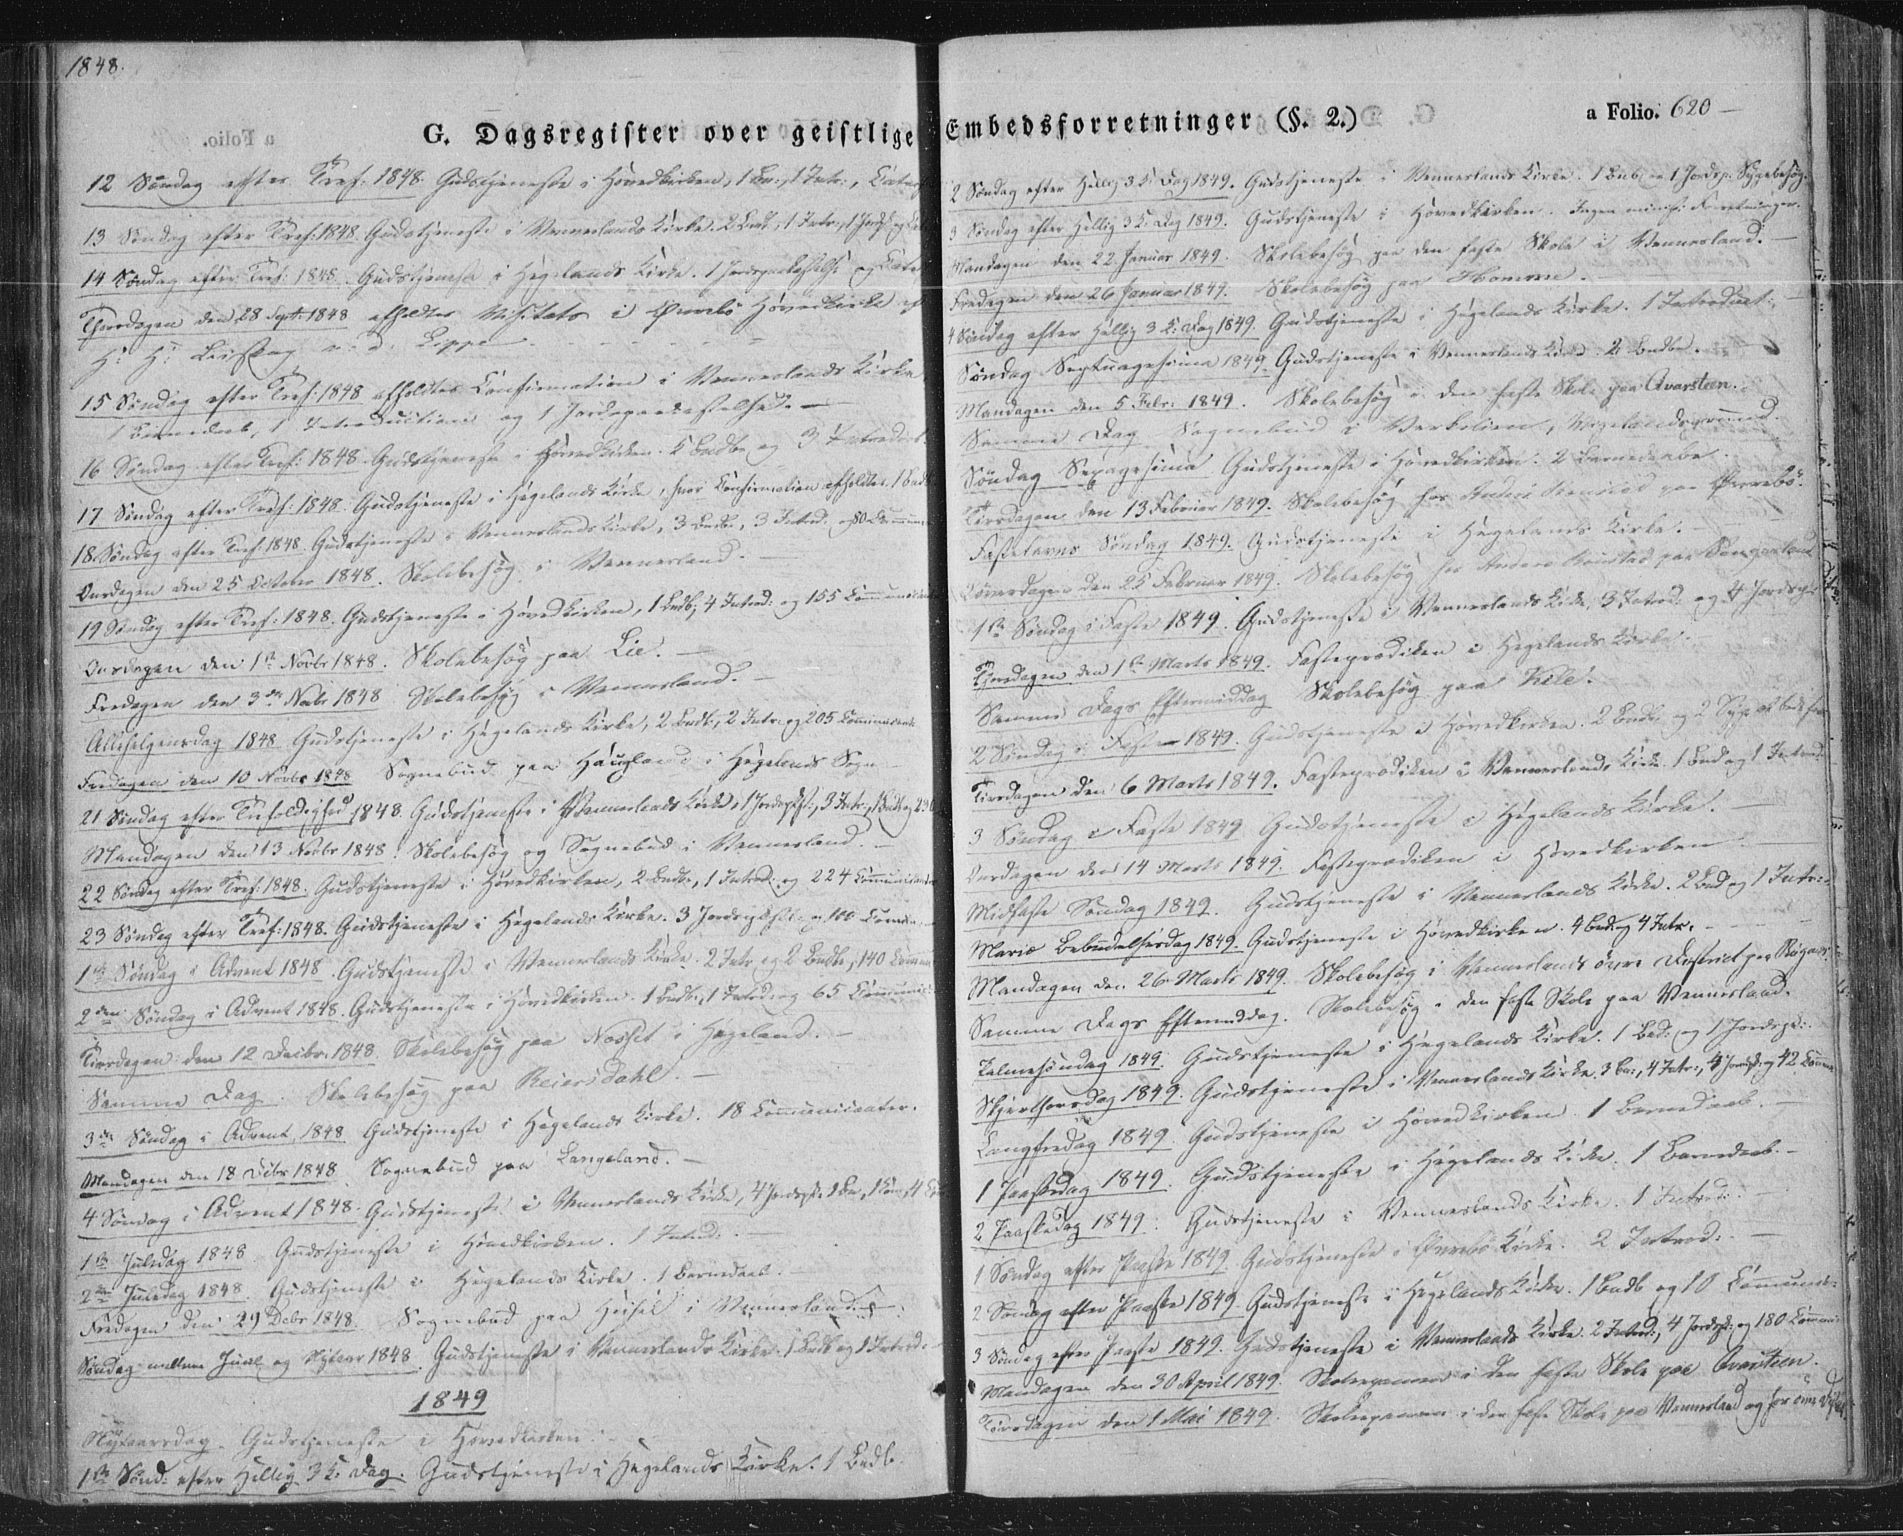 1848.
G. Dagsregister over geistlige Embedsforretninger (§. 2.)
a Folio. 620
12 Søndag efter Tref: 1848. Gudstjeneste i Hovedkirken, 1 Br:, 1 Intr:,
13 Søndag efter Tref: 1848. Gudstjeneste i Vennerlands Kirke. 2 Brb:, 1 Intr:, 1 Jordsp
14 Søndag efter Tref: 1848. Gudstjeneste i Hegelands Kirke. 1 Jordspaakastelse og
Thorsdagen den 28 Sept: 1848 afholdtes Visitats i Øvrebø Hovedkirke af
H: H: Biskop v. d. Lippe
15 Søndag efter Tref: 1848 afholdtes Confirmation i Vennerlands Kirke,
1 Barnedaab, 1 Introduction og 1 Jordspaakastelse.
16 Søndag efter Tref: 1848. Gudstjeneste i Hovedkirken. 5 Brdb: og 3 Introduct.
17 Søndag efter Tref: 1848. Gudstjeneste i Hegelands Kirke, hvor Confirmation afholdtes. 1 Brdb
18 Søndag efter Tref: 1848. Gudstjeneste i Vennerlands Kirke, 3 Brdb:, 3 Introd:
Onsdagen den 25 October 1848. Skolebesøg i Vennerland.
19 Søndag efter Tref: 1848. Gudstjeneste i Hovedkirken, 1 Brdb:, 4 Introd: og 155 Communicanter
Onsdagen den 1ste Novbr 1848. Skolebesøg paa Lie.
Fredagen den 3die Novbr 1848 Skolebesøg i Vennerland.
Allehelgensdag 1848 Gudstjeneste i Hegelands Kirke, 2 Brdb:, 2 Intr: og 205 Communicanter
Fredagen den 10 Novbr 1848 Sognebud paa Haugland i Hegelands Sogn
21 Søndag efter Trefoldighed 1848. Gudstjeneste i Vennerlands Kirke, 1 Jordspkst:, 3 Intr:, 1 Brdb og 230
Mandagen den 13 Novbr 1848. Skolebesøg og Sognebud i Vennerland.
22 Søndag efter Tref: 1848. Gudstjeneste i Hovedkirken, 2 Brdb:, 1 Introd: og 224 Communicanter
23 Søndag efter Tref: 1848. Gudstjeneste i Hegelands Kirke. 3 Jordspkstl: og 100 Commu
1ste Søndag i Advent 1848. Gudstjeneste i Vennerlands Kirke. 2 Intr og 2 Brdb:, 140 Commu
2den Søndag i Advent 1848. Gudstjeneste i Hovedkirken. 1 Brdb:, 1 Introd: og 65 Communic:
Tirsdagen den 12 Decbr: 1848. Skolebesøg paa Nosset i Hegeland.
Samme Dag. Skolebesøg paa Reiersdahl.
3die Søndag i Advent 1848 Gudstjeneste i Hegelands Kirke. 18 Communicanter.
Mandagen den 18 Decbr 1848. Sognebud paa Langeland.
4 Søndag i Advent 1848. Gudstjeneste i Vennerlands Kirke, 4 Jordspk:
1ste Juledag 1848. Gudstjeneste i Hovedkirken. 1 Introd:.
2den Juledag 1848. Gudstjeneste i Hegelands Kirke. 1 Barnedaab.
Fredagen den 29 Debr 1848. Sognebud paa Heisel i Vennerland.
Søndag mellem Juul og Nytaar 1848. Gudstjeneste i Vennerlands Kirke. 1 Brdb og 1 Introd:
1849
Nytaarsdag. Gudstjeneste i Hovedkirken.
1ste Sønd: efter Hellig 3 K: Dag. Gudstjeneste i Hegelands Kirke. 1 Brdb.
2 Søndag efter Hellig 3 K: Dag 1849. Gudstjeneste i Vennerlands Kirke. 1 Brdb, 1 Jordsp. Sygebesøg.
3 Søndag efter Hellig 3 K: Dag 1849. Gudstjeneste i Hovedkirken. Ingen minist: Forretninger.
Mandagen den 22 Januar 1849. Skolebesøg paa den faste Skole i Vennerland.
Fredagen den 26 Januar 1849. Skolebesøg paa Homme.
4 Søndag efter Hellig 3 K: Dag 1849. Gudstjeneste i Hegelands Kirke. 1 Introduct:
Søndag Septuagesima 1849. Gudstjeneste i Vennerlands Kirke. 2 Brdb:
Mandagen den 5 Febr: 1849. Skolebesøg i den faste Skole paa Qvarsteen.
Samme Dag Sognebud i
Søndag Sexagesima Gudstjeneste i Hovedkirken. 2 Barnedaabe.
Tirsdagen den 13 Februar 1849. Skolebesøg hos Anders paa Øvrebø.
Fastelavns Søndag 1849. Gudstjeneste i Hegelands Kirke.
den 25 Februar 1849. Skolebesøg hos Anders paa
1ste Søndag i Faste 1849. Gudstjeneste i Vennerlands Kirke, 3 Introd: og 4 Jordspk:
Thorsdagen den 1ste Marts 1849. Fasteprædiken i Hegelands Kirke.
Samme Dags Eftermiddag Skolebesøg paa Kile.
2 Søndag i Faste 1849. Gudstjeneste i Hovedkirken. 2 Brdb: og 2
Tirsdagen den 6 Marts 1849. Fasteprædiken i Vennerlands Kirke. 1 Brd og 1 Introd:
3 Søndag i Faste 1849 Gudstjeneste i Hegelands Kirke.
Onsdagen den 14 Marts 1849. Fasteprædiken i Hovedkirken
Midfaste Søndag 1849. Gudstjeneste i Vennerlands Kirke. 2 Brd og 1 Intr:
Mariæ Bebudelsesdag 1849. Gudstjeneste i Hovedkirken. 4 Brd: og 4 Intr:
Mandagen den 26 Marts 1849. Skolebesøg i Vennerlands øvre District paa
Samme Dags Eftermiddag. Skolebesøg i den faste Skole paa Vennerland.
Palmesøndag 1849. Gudstjeneste i Hegelands Kirke. 1 Brd: og 1 Jordspk:
Skjærthorsdag 1849. Gudstjeneste i Vennerlands Kirke. 3 Br:, 4 Intr:, 4 Jordsp: og 42 Commu
Langfredag 1849. Gudstjeneste i Hovedkirken 1 Barnedaab.
1 Paaskedag 1849. Gudstjeneste i Hegelands Kirke. 1 Barnedaab.
2 Paaskedag 1849. Gudstjeneste i Vennerlands Kirke. 1 Introd:
1 Søndag efter Paaske 1849. Gudstjeneste i Øvrebø Kirke. 2 Introd:
2 Søndag efter Paaske 1849. Gudstjeneste i Hegelands Kirke. 1 Brdb og 10 Communi:
3 Søndag efter Paaske 1849. Gudstjeneste i Vennerlands Kirke. 2 Introd:, 4 Jordspk: og 180 Commu
Mandagen den 30 April 1849. Skoleexamen i den faste Skole paa Qvarsteen.
Tirsdagen den 1 Mai 1849. Skoleexamen i den faste Skole paa Vennerland og